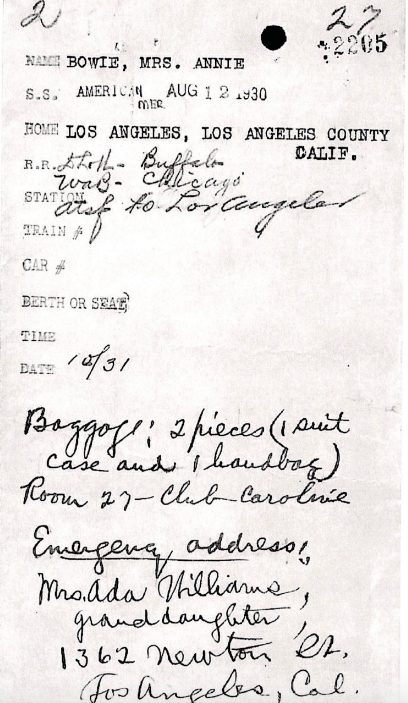 2
27
2205
NAME BOWIE, MRS. ANNIE
S.S. AMERICAN MER AUG 12 1930
HOME LOS ANGELES, LOS ANGELES COUNTY
CALIF.
R.R. - Buffalo
WaB - Chicago
STATION atsf to Los Angeles
TRAIN #
CAR #
BERTH OR SEAT
TIME
DATE 10/31
Baggage: 2 pieces (1 suit
case and 1 handbag)
Room 27 - Club Caroline
Emergency address:
Mrs. Ada Williams,
granddaughter,
1362 Newton St.
Los Angeles, Cal.